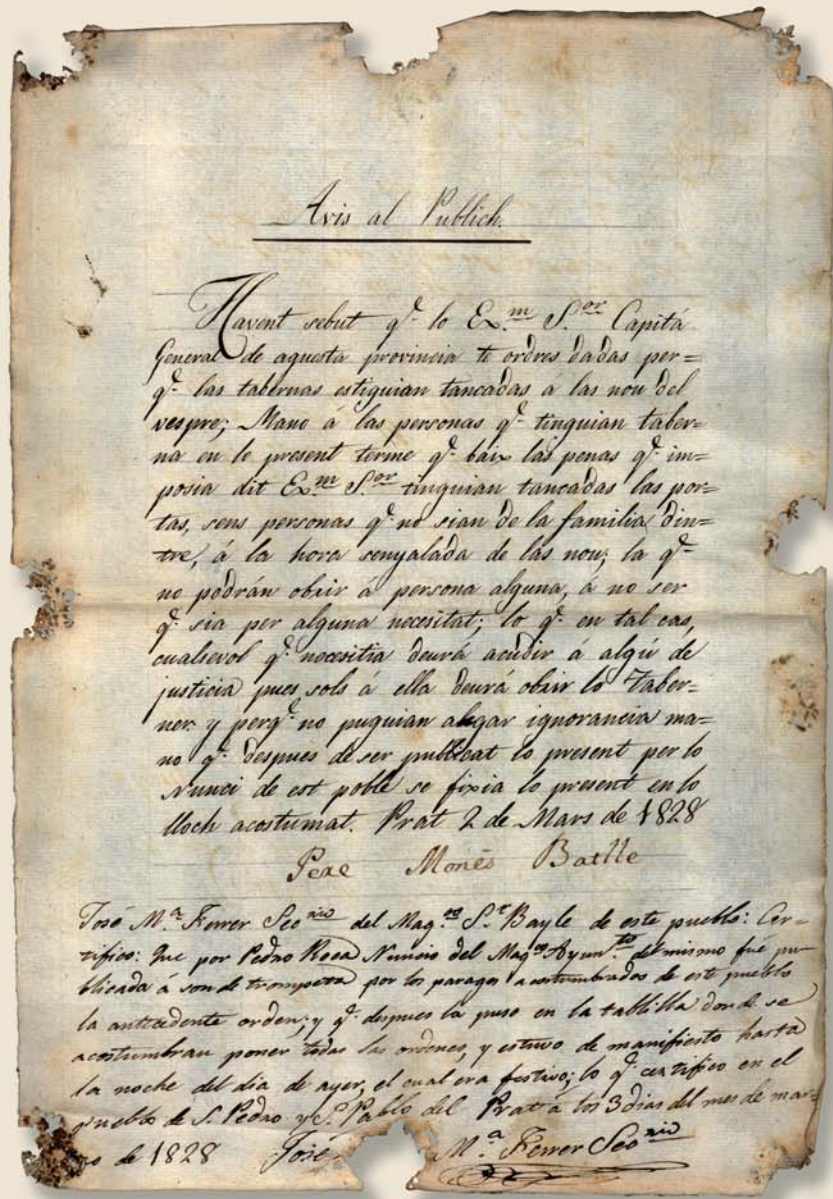 Avis al Publich.
Havent sebut q.e lo Ex.m S.or Capitá
General de aquesta provincia te ordres dadas per=
q.e las tabernas estiguian tancadas á las nou del
vespre; Mano á las personas q.e tinguian taber=
na en lo present terme q.e baix las penas q.e im=
posia dit Ex.m S.or tinguian tancadas las por=
tas, sens personas q.e no sian de la familia din=
tre, á la hora senyalada de las nou; la q.e
no podrán obrir á persona alguna, á no ser
q.e sia per alguna necesitat; lo q.e en tal cas,
cualsevol q.e necesitia deurá acudir á algú de
justicia pues sols á ella deurá obrir lo Taber=
ner: y perq.e no puguian alegar ignorancia ma=
no q.e despues de ser publicat lo present per lo
Nunci de est poble se fixia lo present en lo
lloch acostumat. Prat 2 de Mars de 1828
Pere Monés Batlle
José M.a Ferrer Seo.rio del Mag.co S.r Bayle de este pueblo: Cer=
tifico: Que por Pedro Roca Nuncio del Mag.co Ayun.to del mismo fue pu
blicada á son de trompeta por los parages acostumbrados de este pueblo
la antecedente orden; y q.e despues la puso en la tablilla donde se
acostumbran poner todas las ordenes, y estuvo de manifiesto hasta
la noche del dia de ayer, el cual era festivo; lo q.e certifico en el
pueblo de S. Pedro y S. Pablo del Prat a los 3 dias del mes de mar=
zo de 1828 José M.a Ferrer Seo.rio